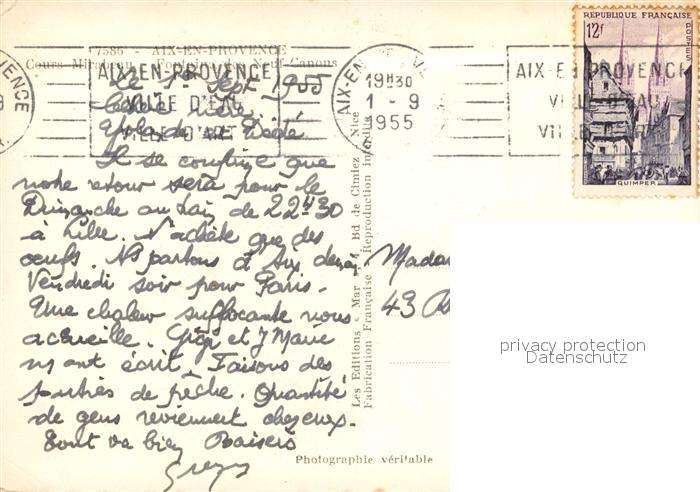 7586 - AIX-EN-PROVENCE
Cours Mirabeau - Fontaine des Neuf-Canons
AIX-EN-PROVENCE
VILLE D'EAU
VILLE D'ART
AIX-EN-
19H30
1 - 9
1955
AIX-EN-PROVENCE
VILLE D'EAU
VILLE D'ART
RÉPUBLIQUE FRANÇAISE
12F
POSTES
QUIMPER
Le 1 Sept 1955
Il se confirme que
notre retour sera pour le
Dimanche au train de 22H30
à Lille. N'achète que des
oeufs. Ns partons d'Aix demain
Vendredi soir pour Paris.
Une chaleur suffocante nous
accueille. Gigi et J Marie
m'ont écrit. Faisons des
parties de pêche. Quantité
de gens reviennent chez eux.
Tout va bien Baisers
Madam
43
Les Editions " Mar ", 4, Bd de Cimiez, Nice
Fabrication Française - Reproduction interdite
Photographie véritable
privacy protection
Datenschutz